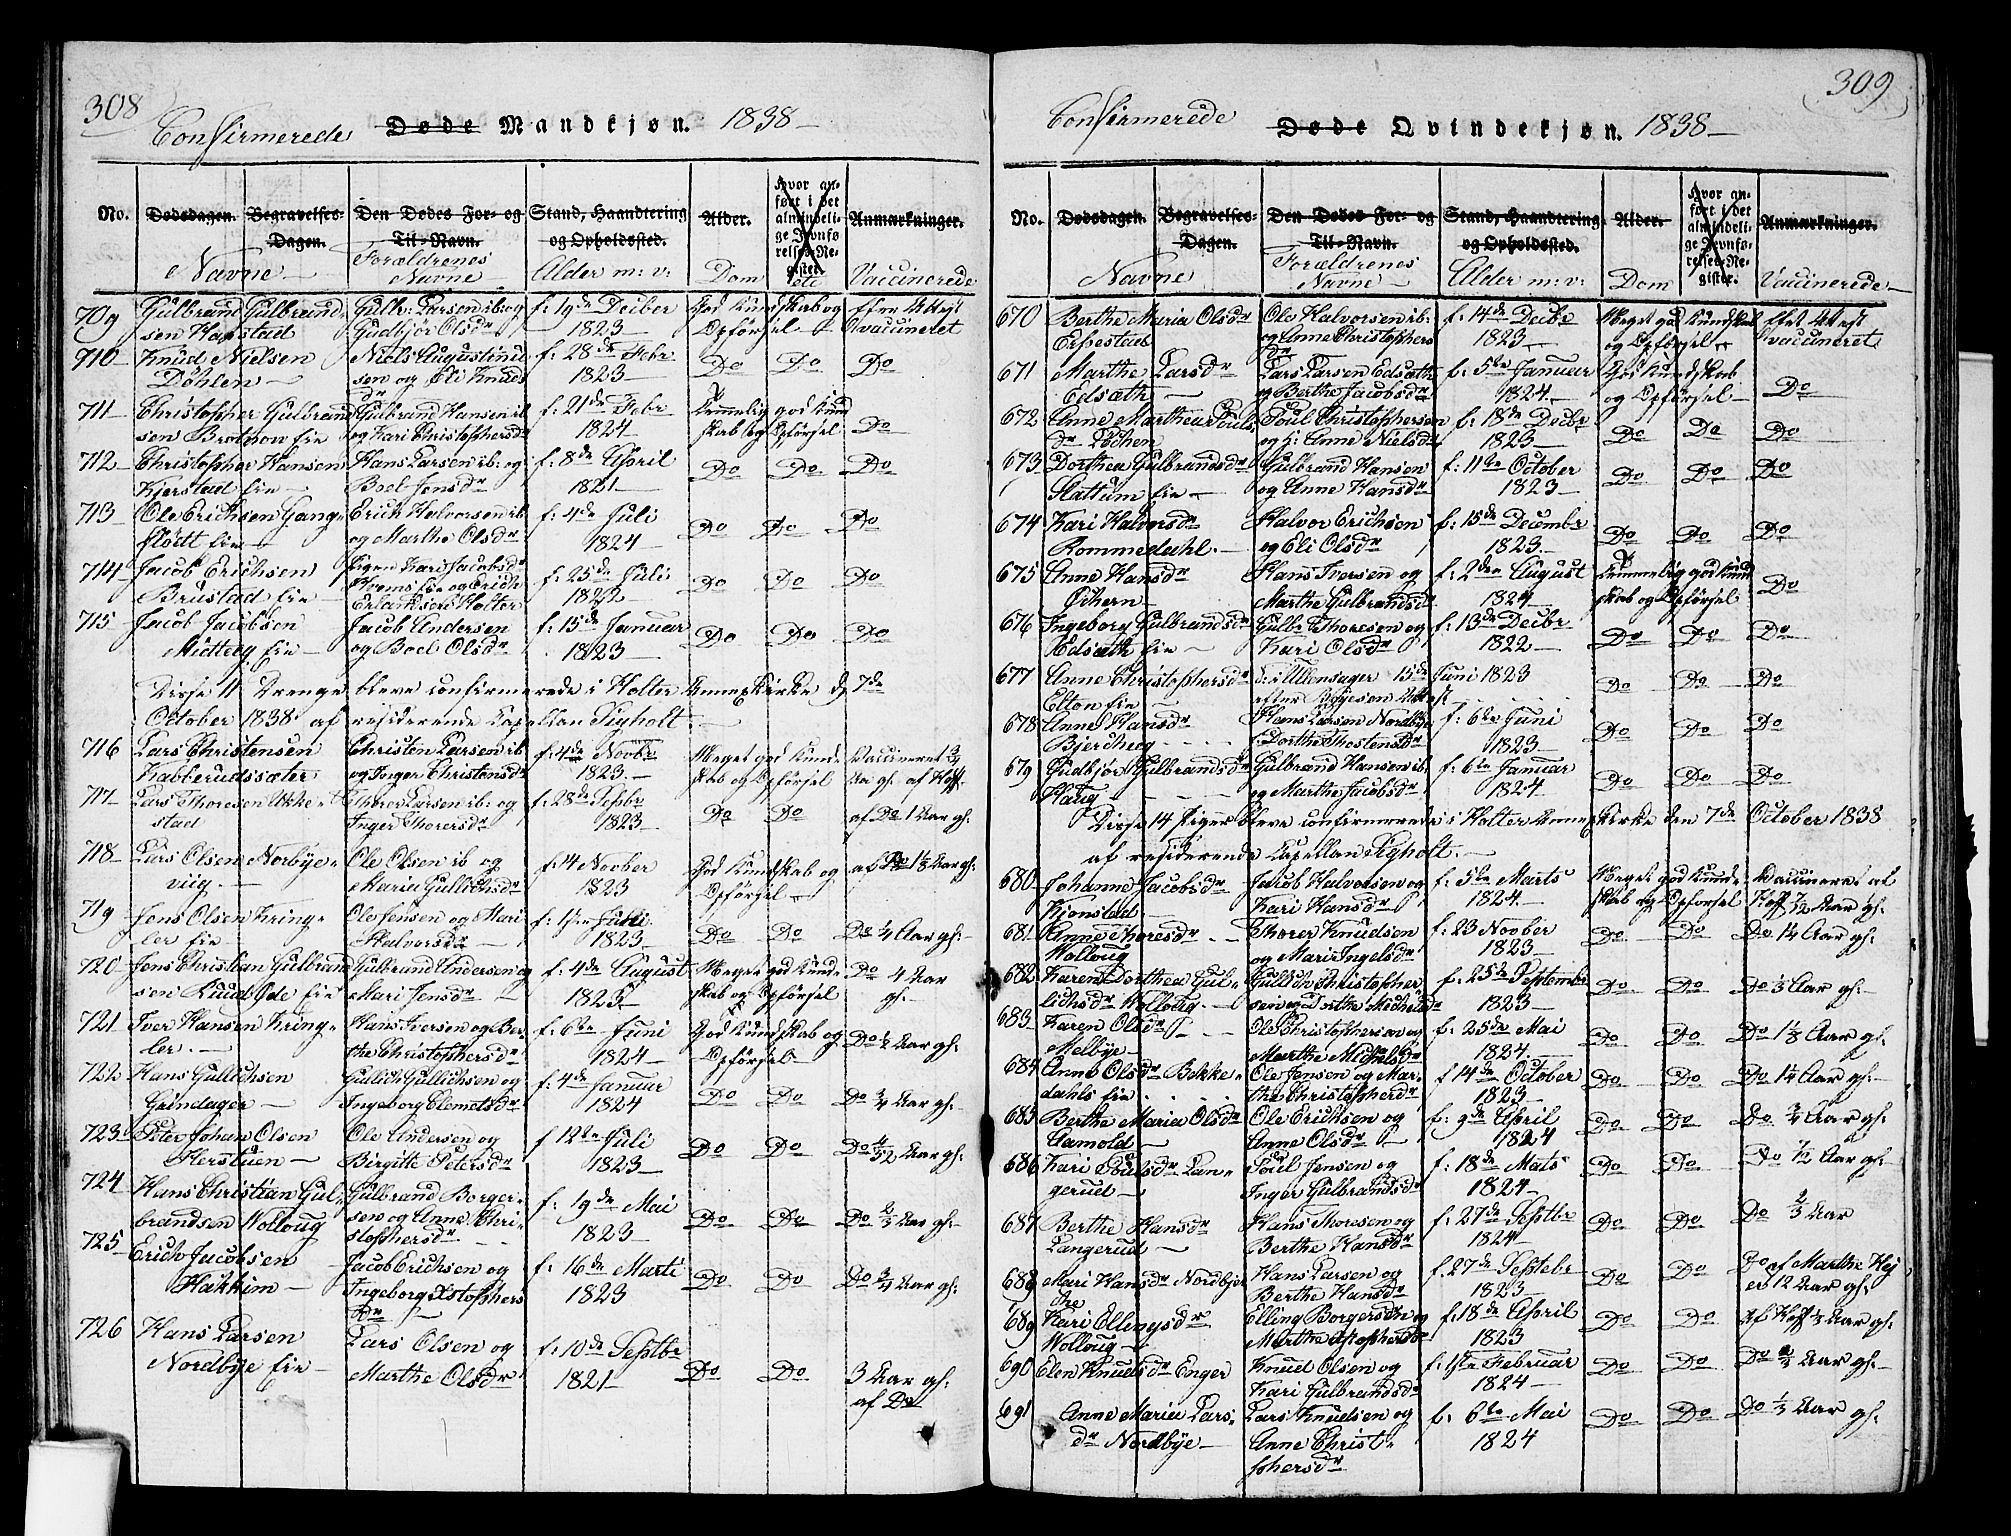 308
Confirmerede Døde Mandkjøn. 1838
No. Dødsdagen. Begravelses-Dagen. Den Dødes For- og Til-Navn. Stand, Haandtering og Opholdssted. Alder. Hvor anført i det almindelige Jevnførelses-Register. Anmærkninger.
Navne Forældrenes Navne Alder m: v: Dom Vaccinerede
709 Gulbrand Gulbrand- Gulbr: Larsen ib: og f: 19de Decber God Kundskab og
sen Harstad Gudbjør Olsdr 1823 Opførsel vaccineret
710 Knud Nielsen Niels Augustinu f: 28de Febr Do Do Do
Døhlen sen og Eli Knuds dr 1823
711 Christopher Gulbrand Gulbrand Hansen ib f: 21de Febr Temmelig god Kund
sen eie og Kari Christophersdr 1824 skab og Opførsel Do
712 Christopher Hansen Hans Larsen ib: og f: 8de April Do Do Do
Kjerstad eie Boel Jensdr 1821
713 Ole Erichsen Gang- Erich Halvorsen ib f: 4de Juli Do Do Do
flødt eie og Marthe Olsdr 1824
714 Jacob Erichsen Pigen Kari Jacobsdr f: 25de Juli Do Do Do
Brustad eie og Erich Holter 1822
715 Jacob Jacobsen Jacob Andersen f: 15de Januar Do Do Do
Midtbyg eie og Boel Olsdr 1823
Disse 11 Drenge bleve confirmerede i Holter Annex Kirke d. 7de
October 1838 af residerende Capellan Tygholt.
716 Lars Christensen Christen Larsen ib f: 4de Novbr Meget god Kund- Vaccineret 3/4
Kabberudsæter og Inger Christensdr 1823 skab og Opførsel Aar gl. af Hoff
717 Lars Thoresen Ukke- Thorer Larsen ib: og f: 28de Septbr Do Do af Do 1 Aar gl.
stad Inger Thorersdr 1823
718 Lars Olsen Norbye- Ole Olsen ib og f: 14 Novber God Kundskab og af Do 1 1/8 Aar gl:
viig. Maria Gullichsdr 1823 Opførsel
719 Jens Olsen Kring- Ole Jensen og Mari f: 1ste Juli Do Do Do 1/4 Aar gl:
ler eie Halvorsdr 1823
720 Jens Christian Gulbrand Gulbrand Andersen og f: 4de August Meget god Kund- Do 4 Aar
sen Ruud Øde eie Mari Jensdr 1823 skab og Opførsel gl.
721 Iver Hansen Kring- Hans Iversen og Ber- f: 6te Juni God Kundskab og Do 1/2 Aar gl:
ler. the Christophersdr 1824 Opførsel
722 Hans Gullichsen Gullich Gullichsen og f: 4de Januar Do Do Do 3/4 Aar gl:
Grindager Ingeborg Clemetsdr 1824
723 Peter Johan Olsen Ole Andersen og f 12te Juli Do Do Do Aar gl:
Herstuen Birgitte Petersdr 1823
724 Hans Christian Gul- Gulbrand Borger- f: 19de Mai Do Do Do 2/3 Aar gl:
brandsen Wolloug sen og Anne Chri- stophersdr 1823
725 Erich Jacobsen Jacob Erichsen og f: 16de Marti Do Do Do 3/4 Aar gl:
Hakkim Ingeborg Xstophers dr 1823
726 Hans Larsen Lars Olsen og f: 10de Septbr Do Do 3 Aar gl:
Nordbye eie Marthe Olsdr 1821 af Do
309
Confirmerede Døde Qvindekjøn. 1838
No. Dødsdagen. Begravelses-Dagen. Den Dødes For- og Til-Navn. Stand, Haandtering og Opholdssted. Alder. Hvor anført i det almindelige Jevnførelses-Register. Anmærkninger.
Navne Forældrenes Navne Alder m: v: Dom Vaccinerede
670 Berthe Maria Olsdr Ole Halvorsen ib: f: 14de Decbr Meget god Kundskab
Eijestad og Anne Christophers dr 1823 og Opførsel vaccineret
671 Marthe Larsdr Lars Larsen Edsath f: 5te Januar God Kundskab
Edsath og Berthe Jacobsdr 1824 og Opførsel Do
672 Anne Marthea Pouls Poul Christophersen f: 18de Decbr Do Do Do
dr Ødhen og h: Anne Nielsdr 1823
673 Dorthea Gulbrandsdr Gulbrand Hansen f: 11te October Do Do Do
Slattum eie og Anne Hansdr 1823
674 Kari Halvorsdr Halvor Erichsen f: 15de Decembr Do Do Do
Rommedahl. og Eli Olsdr 1823
675 Anne Hansdr Hans Iversen og f: 2den August Temmelig god Kund
Odhern Marthe Gulbrandsd 1824 skab og Opførsel Do
676 Ingeborg Gulbrandsdr Gulbr Thoresen og f: 13de Decbr Do Do Do
Edsath eie Kari Olsdr 1822
677 Anne Christophersdr i Ullensager 15de Juni 1823 Do Do Do
Elton eie efter Attest
678 Anne Hansdr Hans Larsen Nordbye f: 6te Juni Do Do Do
Bjerkeeg Dorthe Thostensdr 1823
679 Gudbjør Gulbrandsdr Gulbrand Hansen ib. f: 6te Januar Do Do Do
Haug og Marthe Jacobsdr 1824
Disse 14 Piger bleve confirmerede i Holter Annex Kirke den 7de October 1838
af residerende Capellan Tygholt.
680 Johanne Jacobsdr Jacob Halvorsen og f: 5te Marts Meget god Kund- Vaccineret af
Kjonstad Kari Hansdr 1824 skab og Opførsel Hoff 1/2 Aar gl.
681 Anne Thoresdr Thorer Knudsen f: 23 Novber Do Do Do 1/4 Aar gl:
Wolloug og Mari Ingelsdr 1823
682 Karen Dorthea Gul- Gullich Christopher f: 25de Septembr Do Do Do 1/3 Aar gl:
lichsdr Wolloug. sen og Dorthe Michelsdr 1823
683 Karen Olsdr Ole Christophersen og f: 25de Mai Do Do Do 1/8 Aar gl:
Melbye Marthe Michelsdr 1824
684 Anne Olsdr Bekke- Ole Jensen og Mar- f 14de October Do Do Do 1/4 Aar gl:
dahls eie the Christopherdr 1823
685 Berthe Maria Olsdr Ole Erichsen og f: 9de April Do Do Do 3/4 Aar gl:
Aamold Anne Olsdr 1824
686 Kari Poulsdr Lan- Poul Jensen og f: 18de Mats Do Do Do 1/2 Aar gl:
gerud Inger Gulbrandsdr 1824
687 Berthe Hansdr Hans Thoresen og f: 27de Septbr Do Do Do 2/3 Aar
Langerud Berthe Hansdr 1824
688 Mari Hansdr Nordbye Hans Larsen og f. 27de Septebr Do Do Do af Marthe Hej
Berthe Hansdr 1823 12 Aar gl:
689 Kari Ellingsdr Elling Borgersen og f: 18de April Do Do af Hoff 1/3 Aar gl:
Wolloug Marthe Xstophersdr 1823
690 Elen Knudsdr Enger Knud Olsen og f: 1ste Februar Do Do Do 2/3 Aar gl:
Kari Gulbrandsdr 1824
691 Anne Maria Lars- Lars Knudsen og f: 6te Mai Do Do Do 1/3 Aar gl:
dr Nordbye Anne Christ- 1824
phersdr